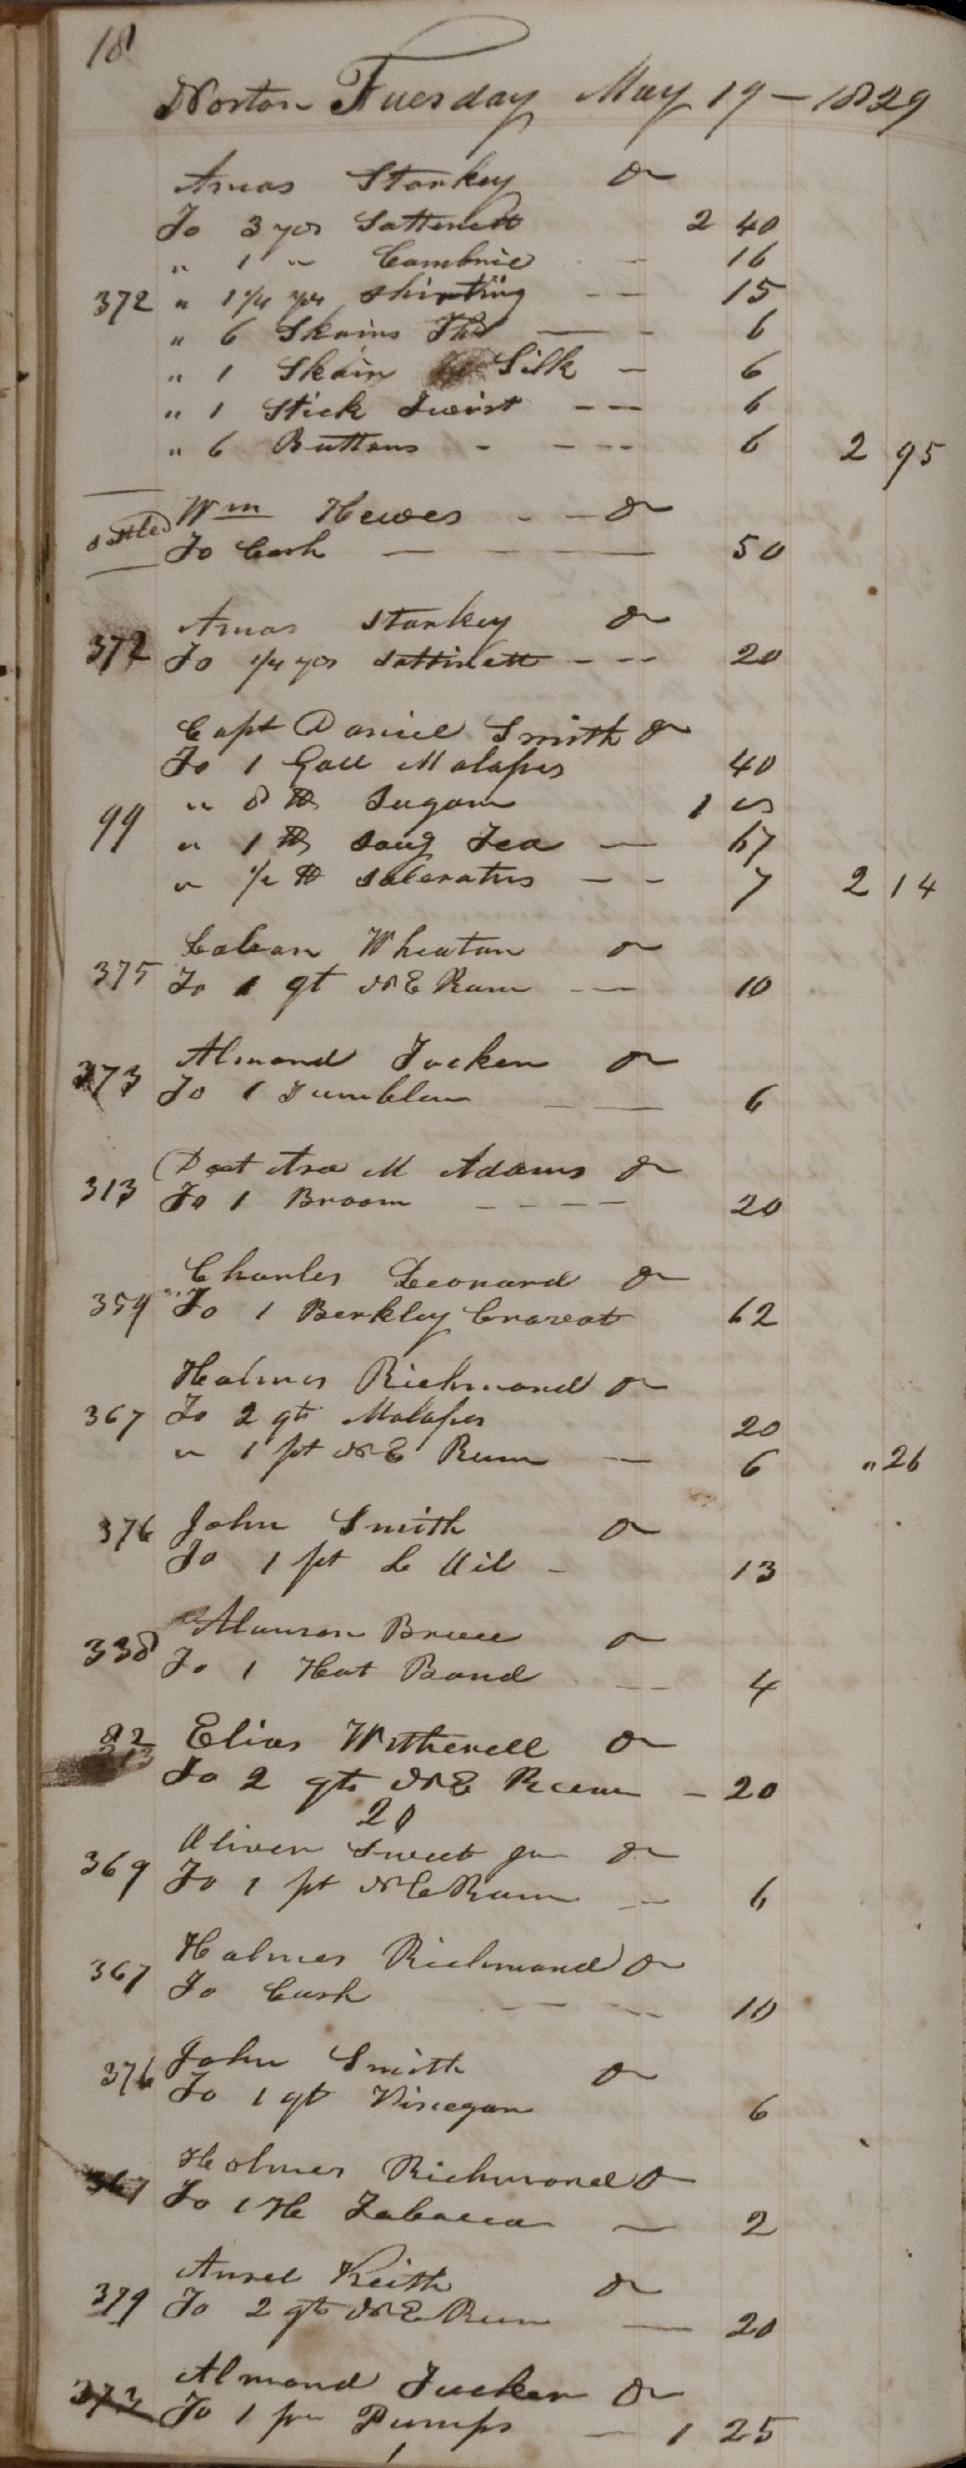 18
Norton Tuesday May 19 - 1829
Amos Starkey Dr
To 3 yds Sattinett 2 40
" 1 " Cambric - 16
372 " 1 1/4 yds Shirting - - 15
" 6 Skains Thd - - 6
" 1 Skain Silk - 6
" 1 Stick Twist - - 6
" 6 Buttons - - - - 6 2 95
Wm Hewes - - Dr
settled To Cash - - - - 50
Amos Starkey Dr
372 To 1/4 yds Sattinett - - - 20
Capt Daniel Smith Dr
To 1 Gall Molasses 40
" 8 lb Sugar 1 00
99 " 1 lb Soug Tea - 67
" 1/2 lb Saleratus - - 7 2 14
Laban Wheaton Dr
375 To 1 qt N E Rum - - 10
Almond Tucker Dr
373 To 1 Tumbler - - 6
Doct Asa M Adams Dr
313 To 1 Broom - - - - 20
Charles Leonard Dr
359 To 1 Berkley Cravat 62
Holmes Richmond Dr
367 To 2 qts Molasses 20
" 1 pt N E Rum - 6 " 26
376 John Smith Dr
To 1 pt L Oil - 13
Alanson Bruce Dr
338 To 1 Hat Band - - 4
82 Elias Witherell Dr
To 2 qts N E Rum - 20
20
Oliver Sweet Jur Dr
369 To 1 pt N E Rum - - 6
Holmes Richmond Dr
367 To Cash - - - 10
John Smith Dr
376 To 1 qt Vinegar 6
Holmes Richmond Dr
367 To 1 Hd Tobacco - 2
Ansel Keith Dr
379 To 2 qts N E Rum - 20
Almond Tucker Dr
373 To 1 pr Pumps - 1 25